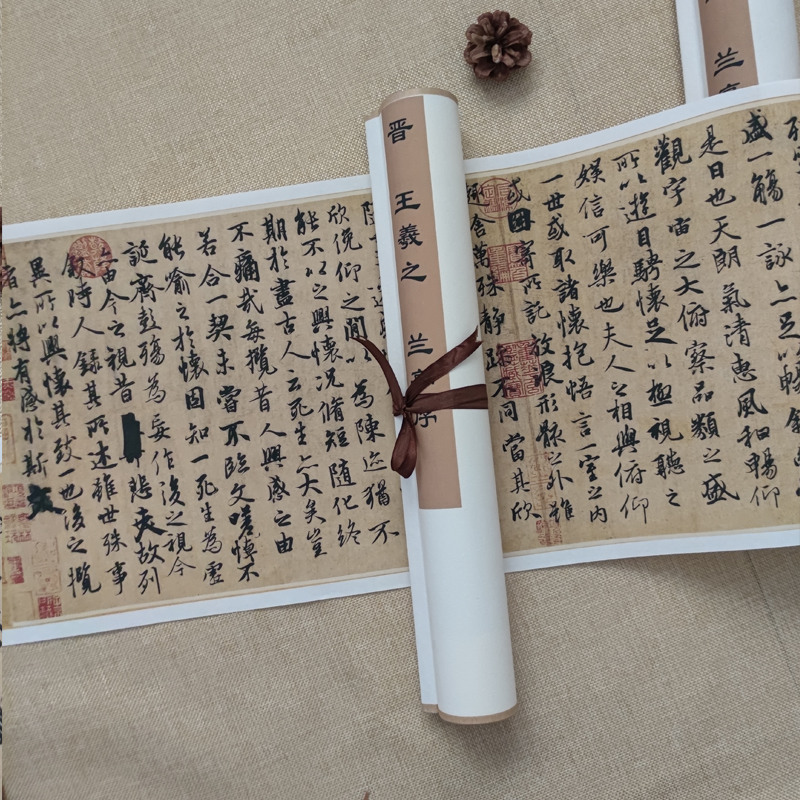 盛一觴一詠亦足以暢敘
是日也天朗氣清惠風和暢仰
觀宇宙之大俯察品類之盛
所以遊目騁懷足以極視聽之
娛信可樂也夫人之相與俯仰
一世或取諸懷抱悟言一室之內
或因寄所託放浪形骸之外雖
趣舍萬殊靜躁不同當其欣
晋 王羲之 兰亭序
欣俛仰之閒以為陳迹猶不
能不以之興懷況脩短隨化終
期於盡古人云死生亦大矣豈
不痛哉每攬昔人興感之由
若合一契未嘗不臨文嗟悼不
能喻之於懷固知一死生為虛
誕齊彭殤為妄作後之視今
亦由今之視昔悲夫故列
敘時人錄其所述雖世殊事
異所以興懷其致一也後之攬
者亦將有感於斯文
兰